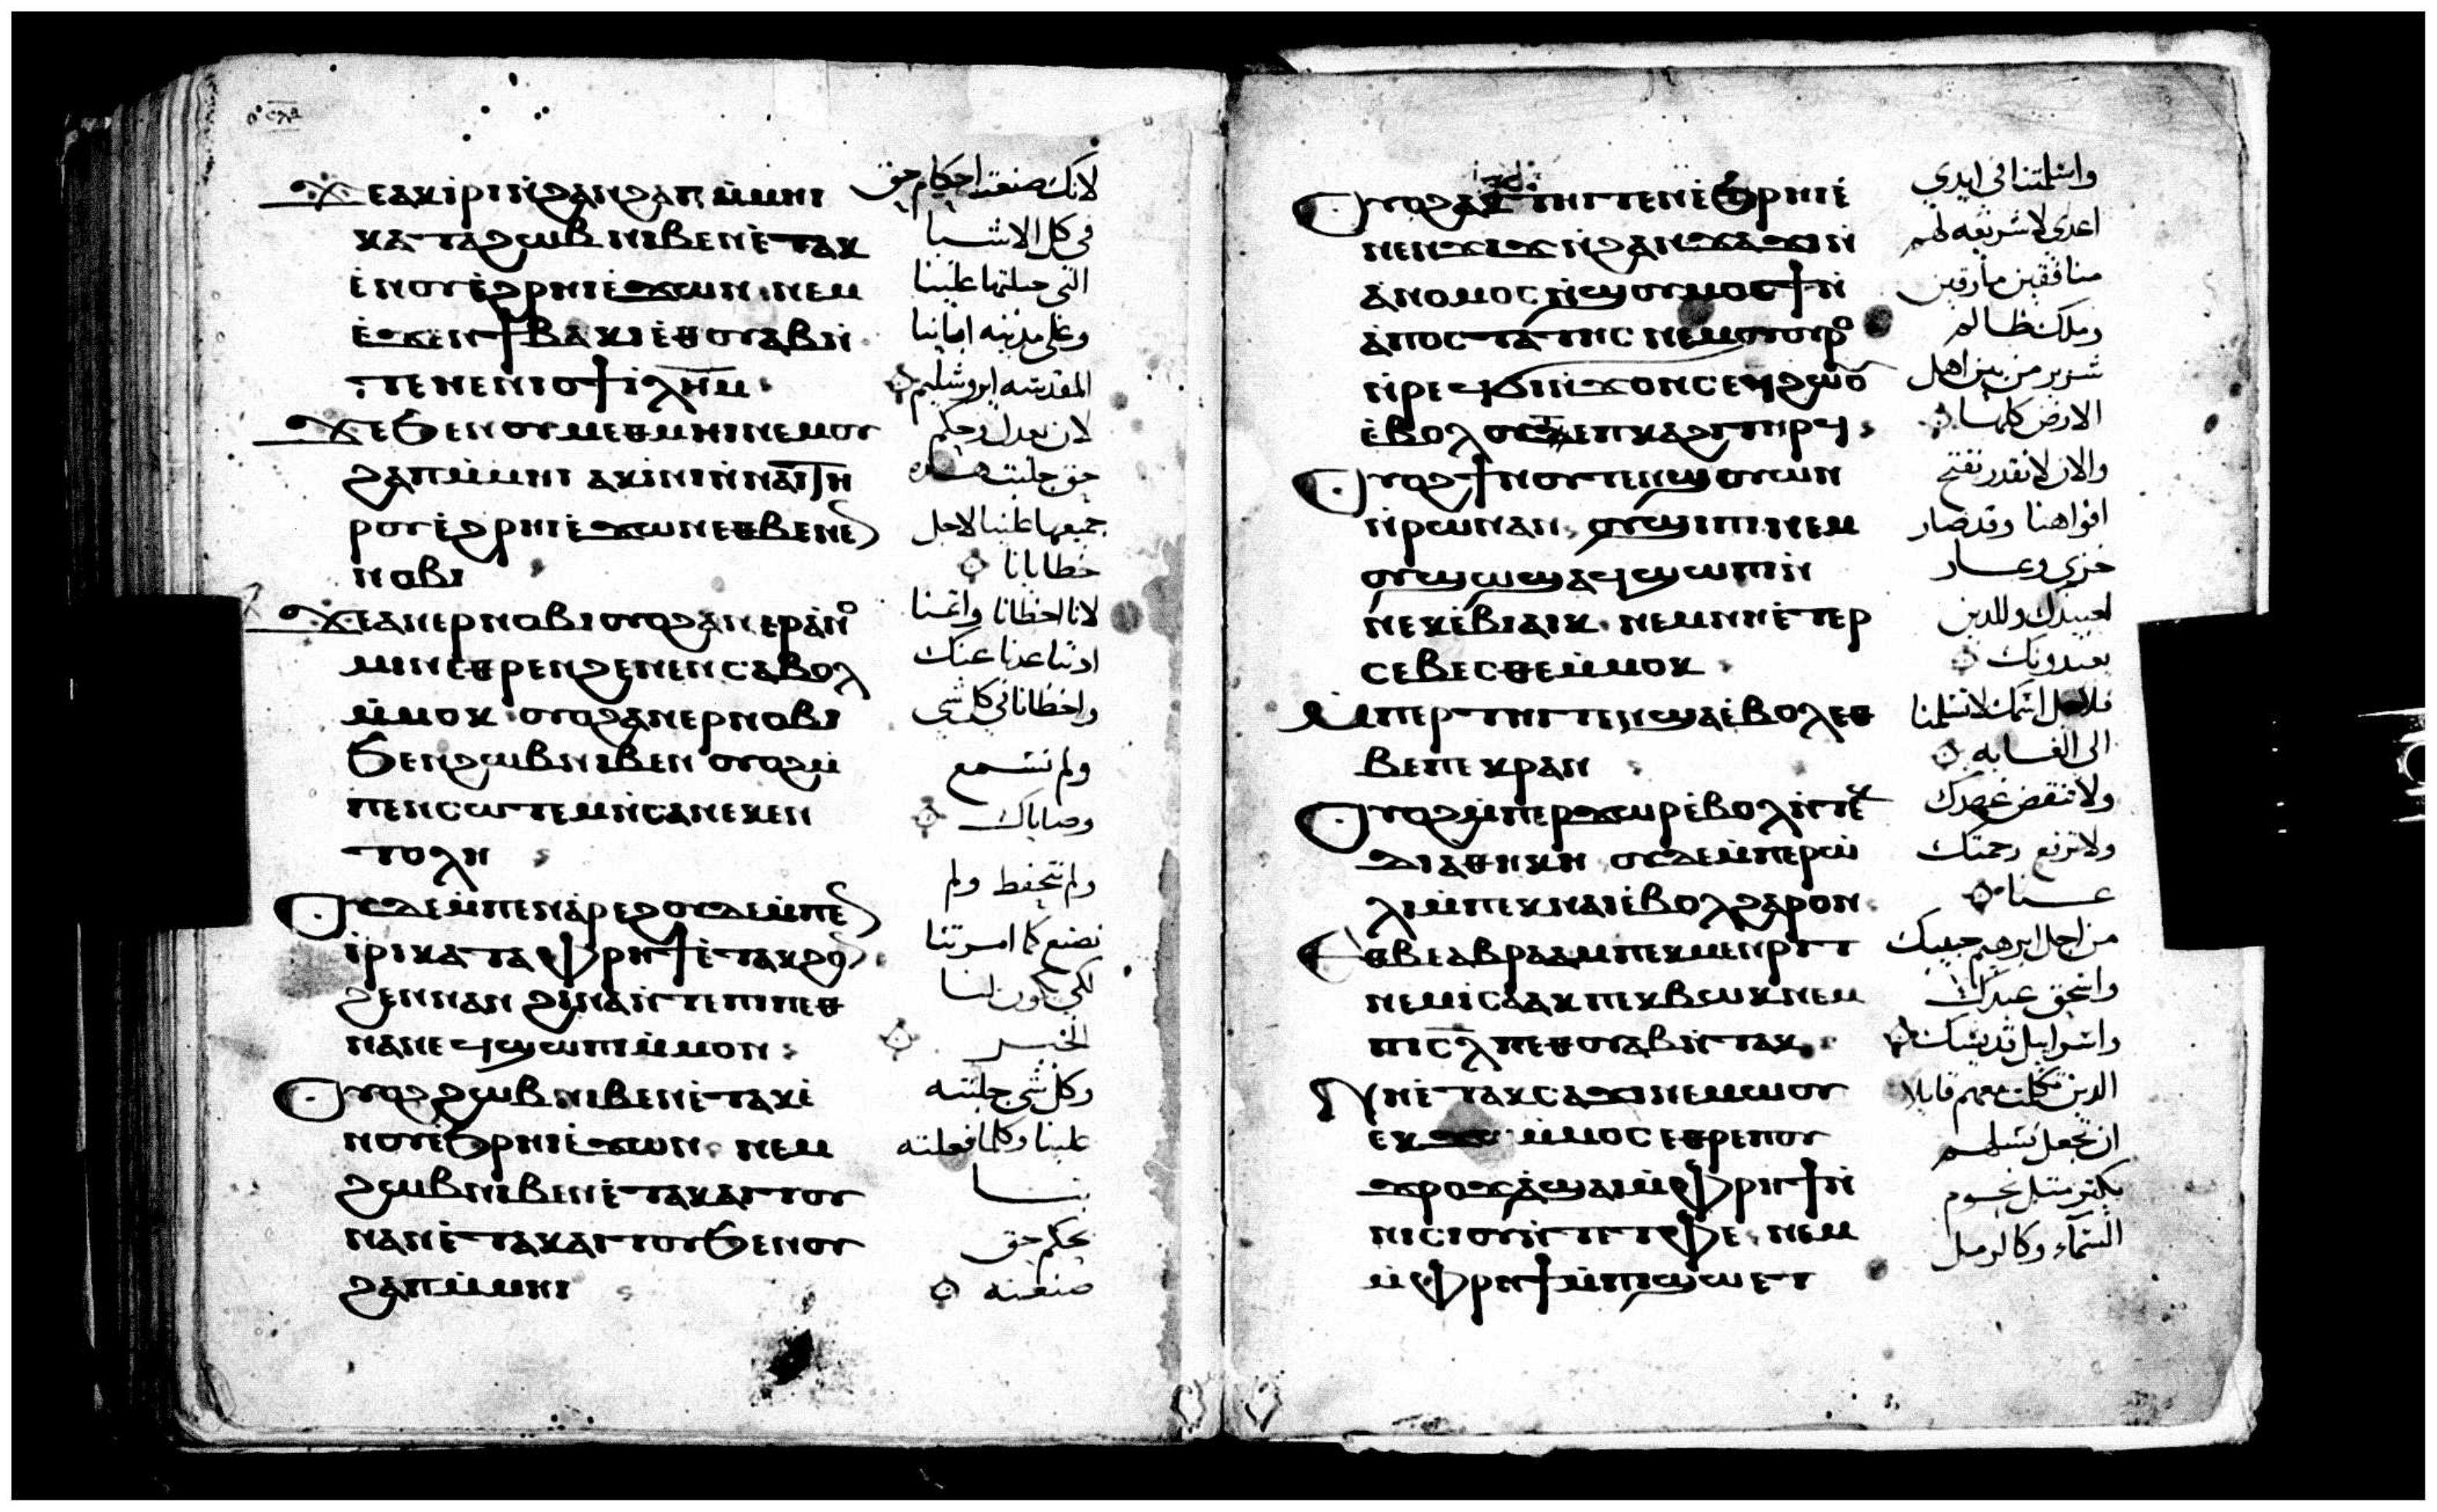 Ϫⲉⲁⲕⲓⲣⲓⲛ̀ϩⲁⲛϩⲁⲡⲙ̀ⲙⲏⲓ
ⲕⲁⲧⲁϩⲱⲃⲛⲓⲃⲉⲛⲉ̀ⲧⲁⲕ
ⲉ̀ⲛⲟⲩⲉ̀ϩⲣⲏⲓⲉ̀ϫⲱⲛ ⲛⲉⲙ
ⲉ̀ϫⲉⲛϯⲃⲁⲕⲓⲉ̀ⲑⲟⲩⲁⲃⲛ̀
ⲧⲉⲛⲉⲛⲓⲟϯ ⲓ̅ⲗ̅ⲏ̅ⲙ̅
ϪⲉϦⲉⲛⲟⲩⲙⲉⲑⲙⲏⲓⲛⲉⲙⲟⲩ
ϩⲁⲡⲙ̀ⲙⲏⲓ ⲁⲕⲓ̀ⲛⲓⲛ̀ⲛⲁⲓⲧⲏ
ⲣⲟⲩⲉ̀ϩⲣⲏⲓⲉ̀ϫⲱⲛⲉⲑⲃⲉⲛⲉⲛ
ⲛⲟⲃⲓ
Ϫⲉⲁⲛⲉⲣⲛⲟⲃⲓⲟⲩⲟϩⲁⲛⲉⲣⲁ̀ⲛⲟ
ⲙⲓⲛⲉⲑⲣⲉⲛϩⲉⲛⲉⲛⲥⲁⲃⲟⲗ
ⲙ̀ⲙⲟⲕ ⲟⲩⲟϩⲁⲛⲉⲣⲛⲟⲃⲓ
Ϧⲉⲛϩⲱⲃⲛⲓⲃⲉⲛ ⲟⲩⲟϩⲙ̀
ⲡⲉⲛⲥⲱⲧⲉⲙⲛ̀ⲥⲁⲛⲉⲕⲉⲛ
ⲧⲟⲗⲏ
Ⲟⲩⲇⲉⲙ̀ⲡⲉⲛⲁ̀ⲣⲉϩⲟⲩⲇⲉⲙ̀ⲡⲉⲛ
ⲓ̀ⲣⲓⲕⲁⲧⲁⲫⲣⲏϯⲉ̀ⲧⲁⲕϩⲟⲛ
ϩⲉⲛⲛⲁⲛ ϩⲓⲛⲁⲛ̀ⲧⲉⲡⲓⲡⲉⲑ
ⲛⲁⲛⲉϥϣⲱⲡⲓⲙ̀ⲙⲟⲛ
Ⲟⲩⲟϩϩⲱⲃⲛⲓⲃⲉⲛⲉ̀ⲧⲁⲕⲉ̀
ⲛⲟⲩⲉ̀Ϧⲣⲏⲓⲉ̀ϫⲱⲛ ⲛⲉⲙ
ϩⲱⲃⲛⲓⲃⲉⲛⲉ̀ⲧⲁⲕⲁⲓⲧⲟⲩ
ⲛⲁⲛⲉ̀ⲧⲁⲕⲁⲓⲧⲟⲩϦⲉⲛⲟⲩ
ϩⲁⲡⲙ̀ⲙⲏⲓ
لانك صنعت احكام حق
في كل الاشيا
التي جلبتها علينا
وعلى مدينه اباينا
المقدسه ايروشليم
لان بعدل وحكم
حق جلبت هذه
جميعها علينا لاجل
خطايانا
لانا اخطانا واثمنا
اذ تباعدنا عنك
واخطانا في كل شي
ولم نسمع
وصاياك
ولم نحفظ ولم
نصنع كما امرتنا
لكي يكون لنا
الخير
وكل شي جلبته
علينا وكلما فعلته
بنا
بحكم حق
صنعته
Ⲟⲩⲟϩⲁⲕⲧⲏⲓⲧⲉⲛⲉ̀Ϧⲣⲏⲓⲉ̀
ⲛⲉⲛϫⲓϫⲛ̀ϩⲁⲛϫⲁϫⲓⲛ̀
ⲁ̀ⲛⲟⲙⲟⲥⲛ̀ϣⲟⲩⲙⲟⲥϯⲛ̀
ⲁ̀ⲡⲟⲥⲧⲁⲧⲏⲥ ⲛⲉⲙⲟⲩⲟⲩⲣⲟ
ⲛ̀ⲣⲉϥϭⲓⲛ̀ϫⲟⲛⲥⲉϥϩⲱⲟⲩ
ⲉ̀ⲃⲟⲗⲟⲩⲧⲉⲡⲕⲁϩⲓⲧⲏⲣϥ
Ⲟⲩⲟϩϯⲛⲟⲩⲧⲉⲛϣⲟⲩⲱⲛ
ⲛ̀ⲣⲱⲛⲁⲛ ⲟⲩϣⲓⲡⲓⲛⲉⲙ
ⲟⲩϣⲱϣⲁϥϣⲱⲡⲓⲛ̀
ⲛⲉⲕⲉ̀ⲃⲓⲁⲓⲕ ⲛⲉⲙⲛⲏⲉ̀ⲧⲉⲣ
ⲥⲉⲃⲉⲥⲑⲉⲙ̀ⲙⲟⲕ
Ⲙ̀ⲡⲉⲣⲧⲏⲓⲧⲉⲛϣⲁⲉ̀ⲃⲟⲗⲉⲑ
ⲃⲉⲡⲉⲕⲣⲁⲛ
Ⲟⲩⲟϩⲙ̀ⲡⲉⲣϫⲱⲣⲉ̀ⲃⲟⲗⲛ̀ⲧⲉⲕ
ⲇⲓⲁⲑⲏⲕⲏ ⲟⲩⲇⲉⲙ̀ⲡⲉⲣⲱ̀
ⲗⲓⲙ̀ⲡⲉⲕⲛⲁⲓⲉ̀ⲃⲟⲗϩⲁⲣⲟⲛ
Ⲉⲑⲃⲉⲁⲃⲣⲁⲁⲙⲡⲉⲕⲙⲉⲛⲣⲓⲧ
ⲛⲉⲙⲓ̀ⲥⲁⲁⲕ ⲡⲉⲕⲃⲱⲕⲛⲉⲙ
ⲡⲓⲥ̅ⲗ̅ ⲡⲉⲑⲟⲩⲁⲃⲛ̀ⲧⲁⲕ
Ⲛⲏⲉ̀ⲧⲁⲕⲥⲁϫⲓⲛⲉⲙⲱⲟⲩ
ⲉⲕϫⲱⲙ̀ⲙⲟⲥⲉⲑⲣⲉⲡⲟⲩ
ϫⲣⲟϫⲁ̀ϣⲁⲓⲙ̀ⲫⲣⲏϯⲛ̀
ⲛⲓⲥⲓⲟⲩⲛ̀ⲧⲉⲧⲫⲉ ⲛⲉⲙ
ⲙ̀ⲫⲣⲏϯⲙ̀ⲡⲓϣⲱⲉⲧ
واسلمتنا في ايدي
اعدي لا شريعه لهم
منافقين مارقين
وملك ظالم
شرير من بين اهل
الارض كلها
والان لا نقدر نفتح
افواهنا وقد صار
خزي وعار
لعبيدك وللذين
يعبدونك
فلاجل اسمك لا تسلمنا
الى الغايه
ولا تنقض عهدك
ولا ترفع رحمتك
عنا
من اجل ابرهيم حبيبك
واسحق عبدك
واسراييل قديسك
الذين تكلمت معهم قايلا
ان تجعل نسلهم
يكثر مثل نجوم
السماء وكالرمل